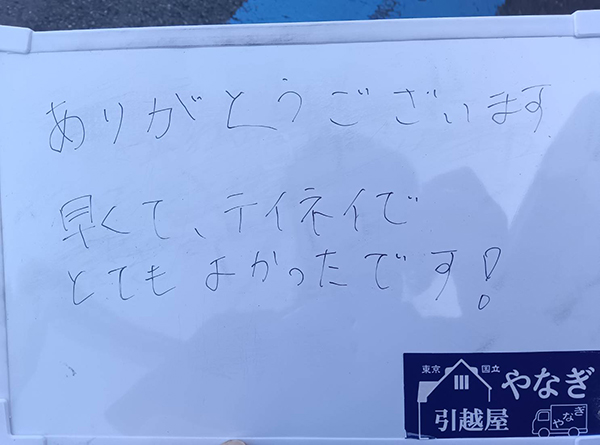 ありがとうございます
早くて、テイネイで
とてもよかったです!
東京 国立 やなぎ
引越屋 やなぎ